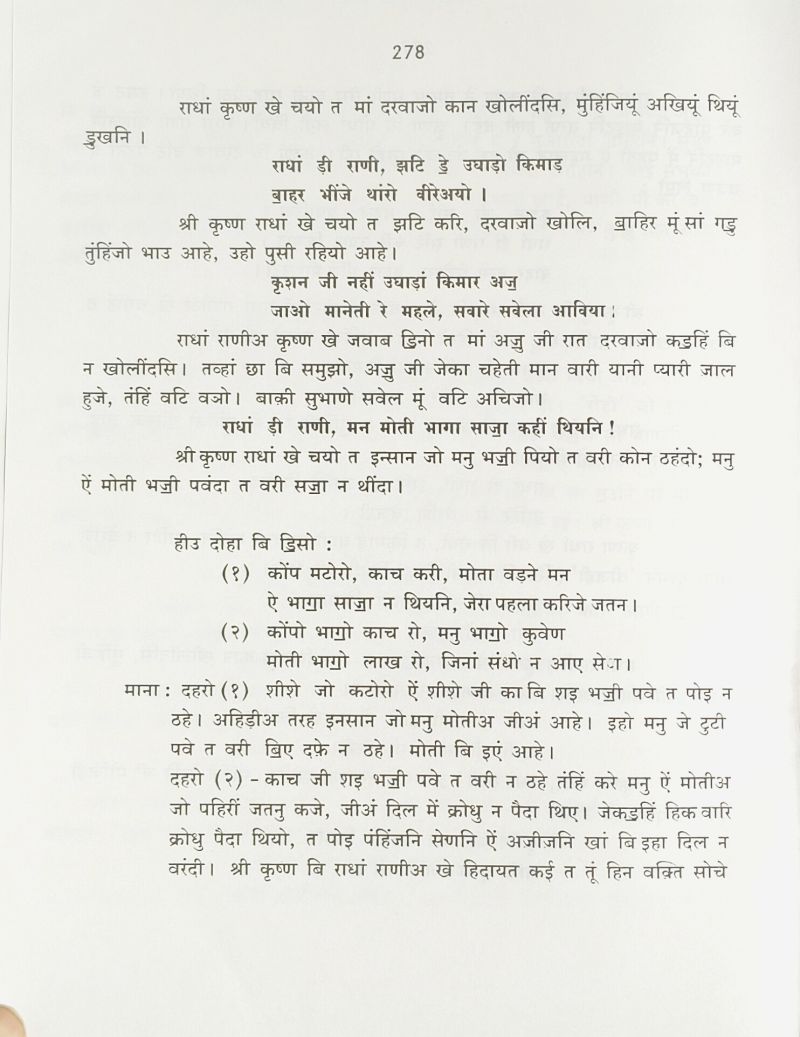 278
राधां कृष्ण खे चयो त मां दरवाजो कान खोलींदसि, मुंहिंजियूं अखियूं थियूं
ॾुखनि ।
राधां ड़ी राणी, झटि ॾे उघाड़ो किमाड़
ॿाहर भींजे थांरो वीरेअयो ।
श्री कृष्ण राधां खे चयो त झटि करि, दरवाजो खोलि, ॿाहिर मूं सां गॾु
तुंहिंजो भाउ आहे, उहो पुसी रहियो आहे।
कृशन जी नहीं उघाड़ां किमार अॼ
जाओ मानेती रे महले, सवारे सवेला आविया।
राधां राणीअ कृष्ण खे जवाब ॾिनो त मां अॼु जी रात दरवाजो कॾहिं बि
न खोलींदसि। तव्हां छा बि समुझो, अॼु जी जेका चहेती मान वारी यानी प्यारी जाल
हुजे, तंहिं वटि वञो। बाक़ी सुभाणे सवेल मूं वटि अचिजो।
राधां ड़ी राणी, मन मोती भागा साॼा कहीं थियनि!
श्री कृष्ण राधां खे चयो त इन्सान जो मनु भॼी पियो त वरी कोन ठहंदो; मनु
ऐं मोती भॼी पवंदा त वरी सॼा न थींदा।
हीउ दोहा बि ॾिसो :
(१) कोंप मटोरो, काच करी, मोता वड़ने मन
ऐ भाॻा साॼा न थियनि, जेरा पहला करिजे जतन।
(२) कोंपो भाॻो काच रो, मनु भाॻो कुवेण
मोती भाॻो लाख रो, जिनां संधो न आए
माना : दहरो (१) शीशे जो कटोरो ऐं शीशे जी का बि शइ भॼी पवे त पोइ न
ठहे। अहिड़ीअ तरह इनसान जो मनु मोतीअ जीअं आहे। इहो मनु जे टुटी
पवे त वरी ॿिए दफ़े न ठहे। मोती बि इएं आहे।
दहरो (२) - काच जी शइ भॼी पवे त वरी न ठहे तंहिं करे मनु ऐं मोतीअ
जो पहिरीं जतनु कजे, जीअं दिल में क्रोधु न पैदा थिए। जेकॾहिं हिक वारि
क्रोधु पैदा थियो, त पोइ पंहिंजनि सेणनि ऐं अजीजनि खां बि इहा दिल न
वरंदी। श्री कृष्ण बि राधां राणीअ खे हिदायत कई त तूं हिन वक़्ति सोचे